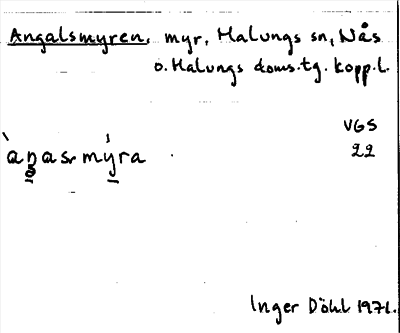 Angalsmyren, myr, Malungs sn, Nås
o. Malungs doms.tg. Kopp.l.
VGS
àŋas mýra
22
Inger Döhl 1971.